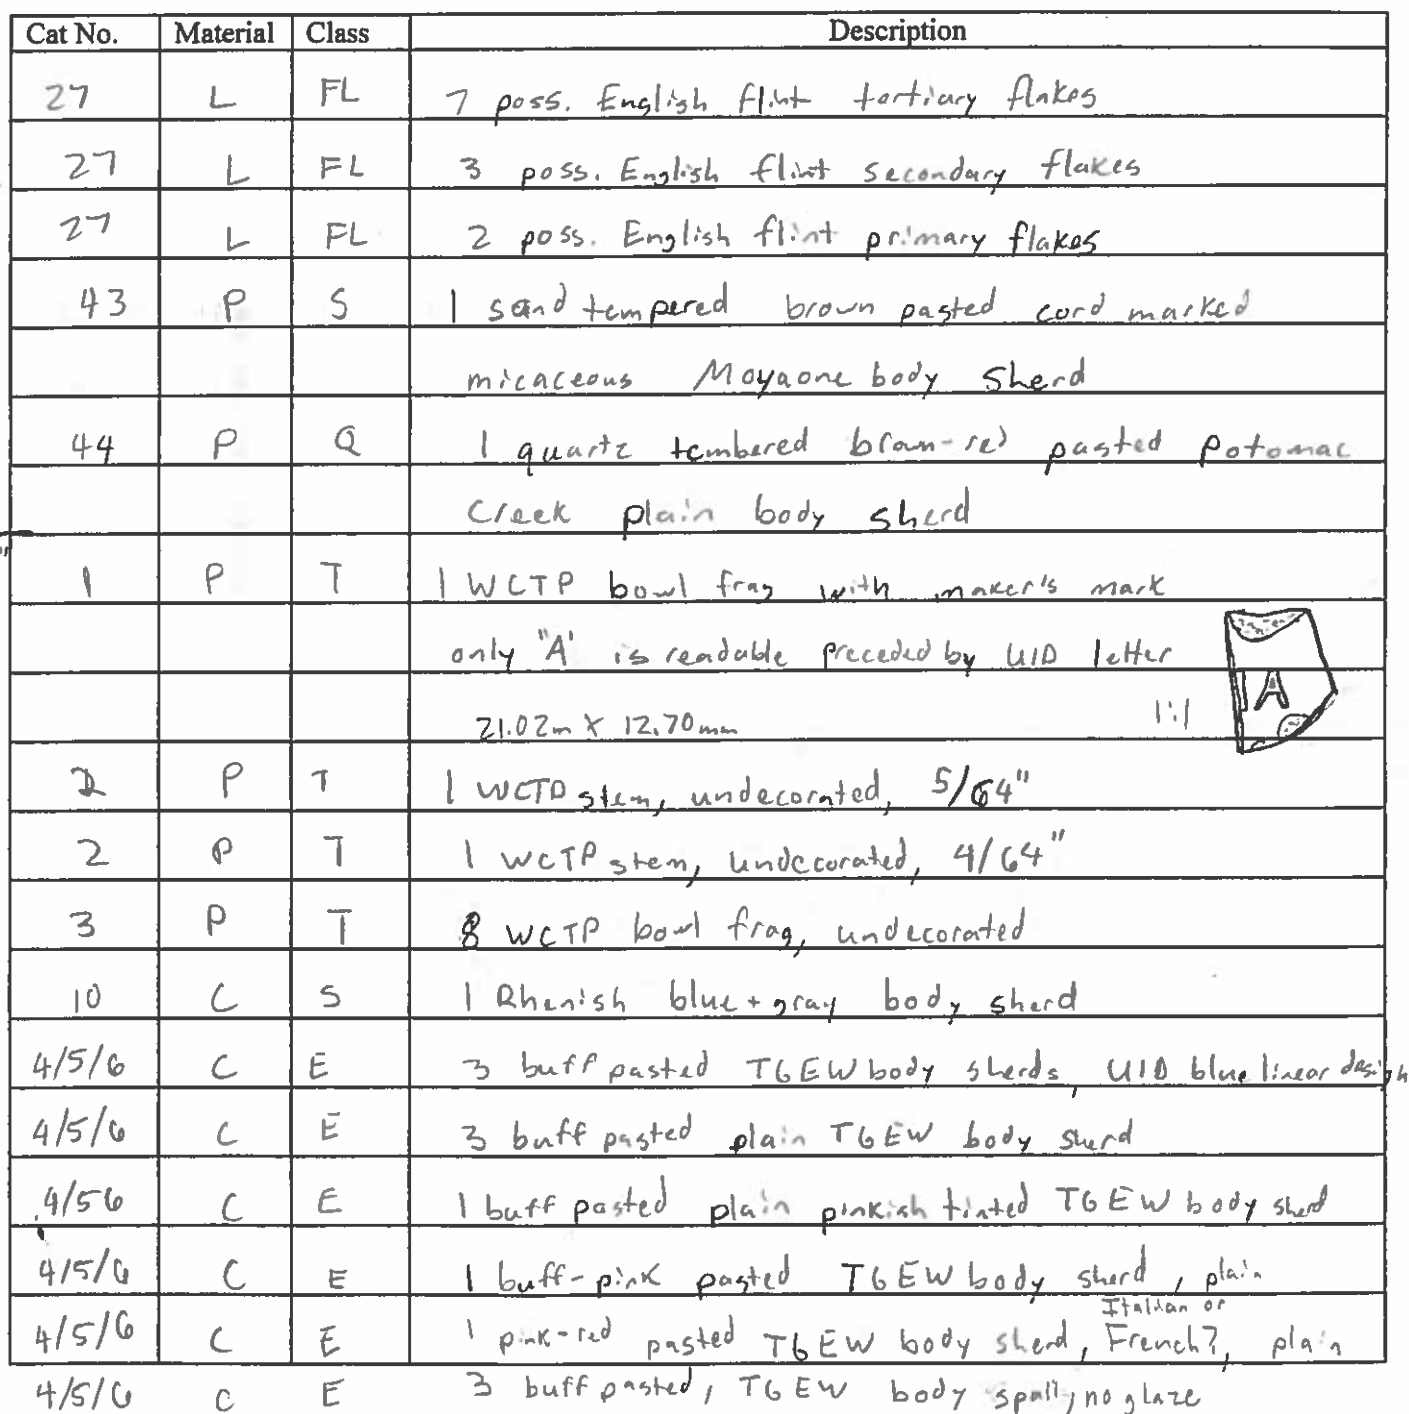 Cat No. Material Class Description
27 L FL 7 poss. English flint tertiary flakes
27 L FL 3 poss. English flint secondary flakes
27 L FL 2 poss. English flint primary flakes
43 P S 1 sand tempered brown pasted cord marked
micaceous Moyaone body sherd
44 P Q 1 quartz tembered brown-red pasted Potomac
Creek plain body sherd
1 P T 1 WCTP bowl frag with maker's mark
only "A" is readable preceded by UID letter
A
21.02m X 12.70mm 1:1
2 P T 1 WCTP stem, undecorated, 5/64"
2 P T 1 WCTP stem, undecorated, 4/64"
3 P T 8 WCTP bowl frag, undecorated
10 C S 1 Rhenish blue + gray body sherd
4/5/6 C E 3 buff pasted TGEW body sherds, UID blue linear design
4/5/6 C E 3 buff pasted plain TGEW body sherd
4/56 C E 1 buff pasted plain pinkish tinted TGEW body sherd
4/5/6 C E 1 buff-pink pasted TGEW body sherd, plain
Italian or
4/5/6 C E 1 pink-red pasted TGEW body sherd, French?, plain
4/5/6 C E 3 buff pasted, TGEW body spall, no glaze